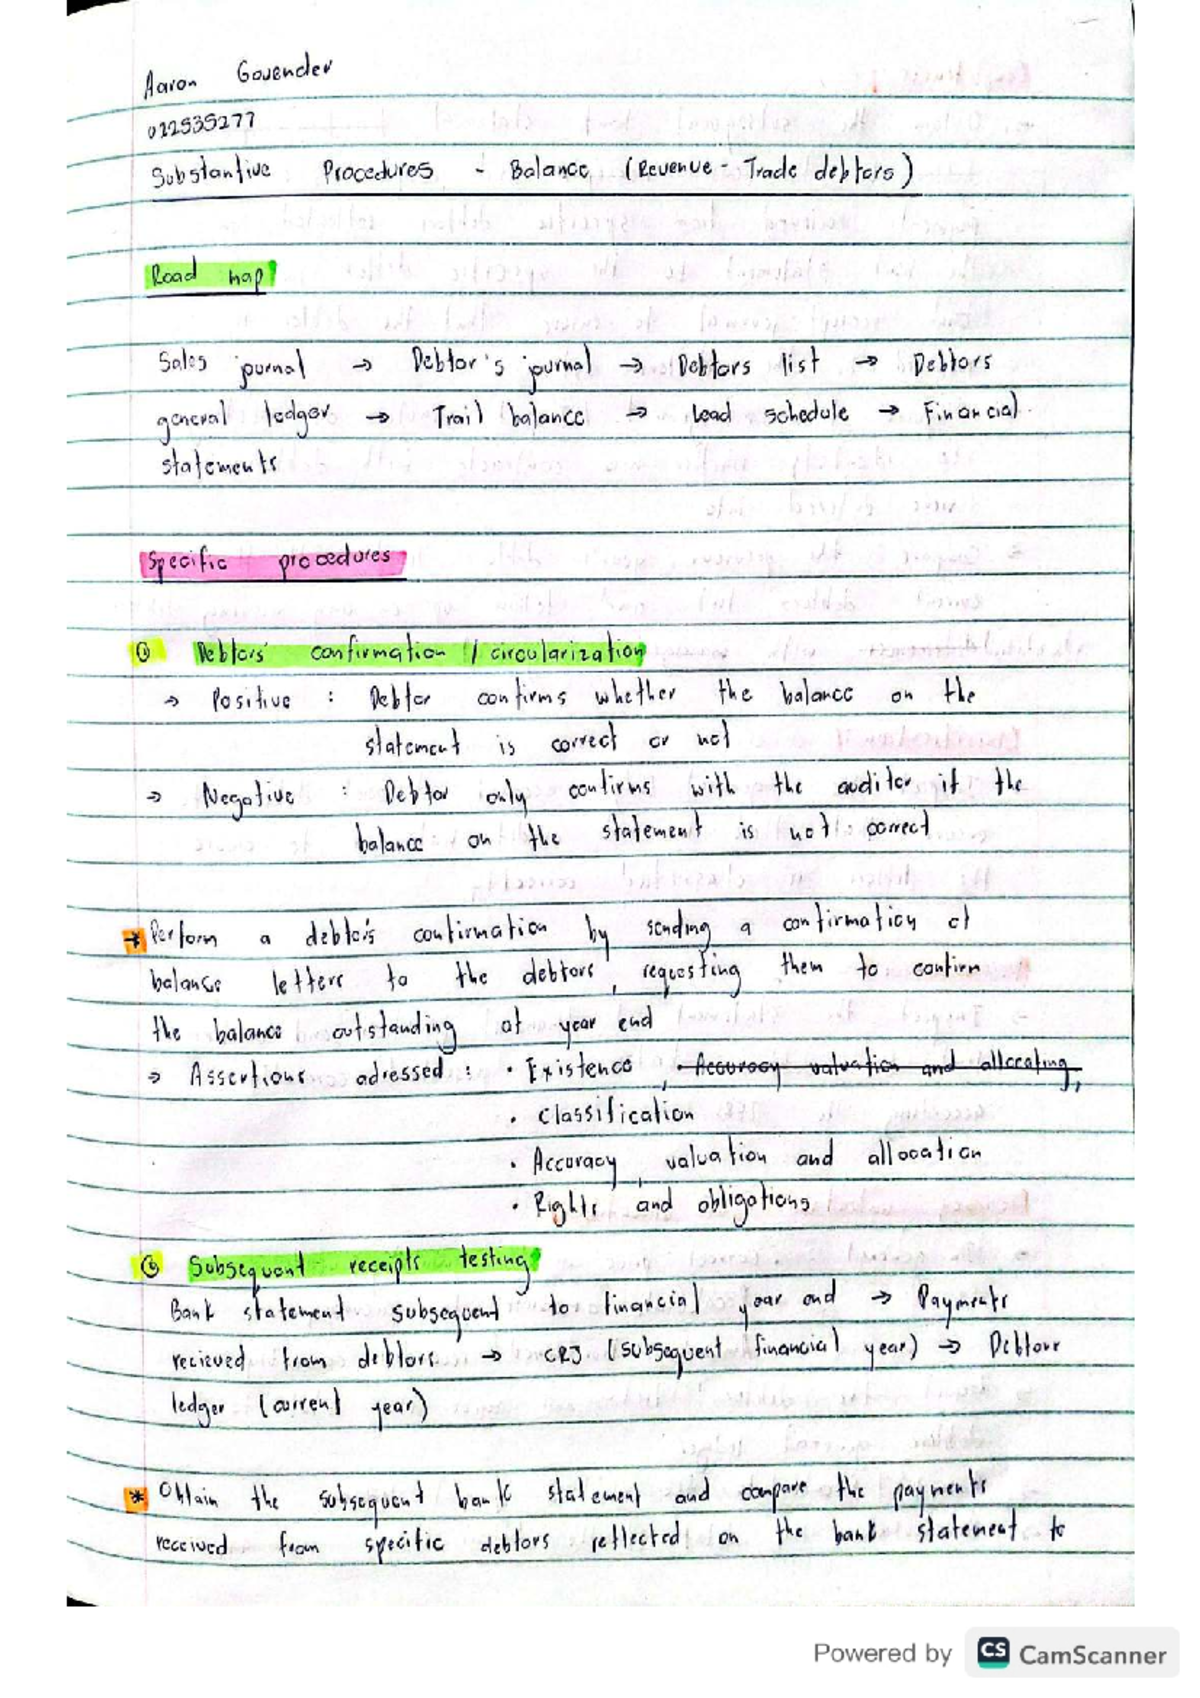 Aaron Govender
022535277
Substantive Procedures - Balance (Revenue - Trade debtors)
Road map
Sales journal → Debtor's journal → Debtors list → Debtors
general ledger → Trail balance → Lead schedule → Financial
statements
Specific procedures
① Debtors' confirmation / circularization
→ Positive : Debtor confirms whether the balance on the
statement is correct or not
→ Negative : Debtor only confirms with the auditor if the
balance on the statement is not correct
* Perform a debtor's confirmation by sending a confirmation of
balance letters to the debtors, requesting them to confirm
the balance outstanding at year end
→ Assertions adressed : · Existence, · Accuracy valuation and allocating,
· classification
· Accuracy, valuation and allocation
· Rights and obligations
Subsequent receipts testing
Bank statement subsequent to financial year end → Payments
recieved from debtors → CRJ (subsequent financial year) → Debtors
ledger (current year)
* Obtain the subsequent bank statement and compare the payments
received from specific debtors reflected on the bank statement to
Powered by CS CamScanner